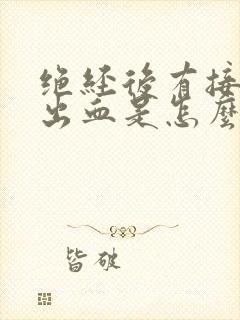 绝经後有接
出血是怎麼
皆破